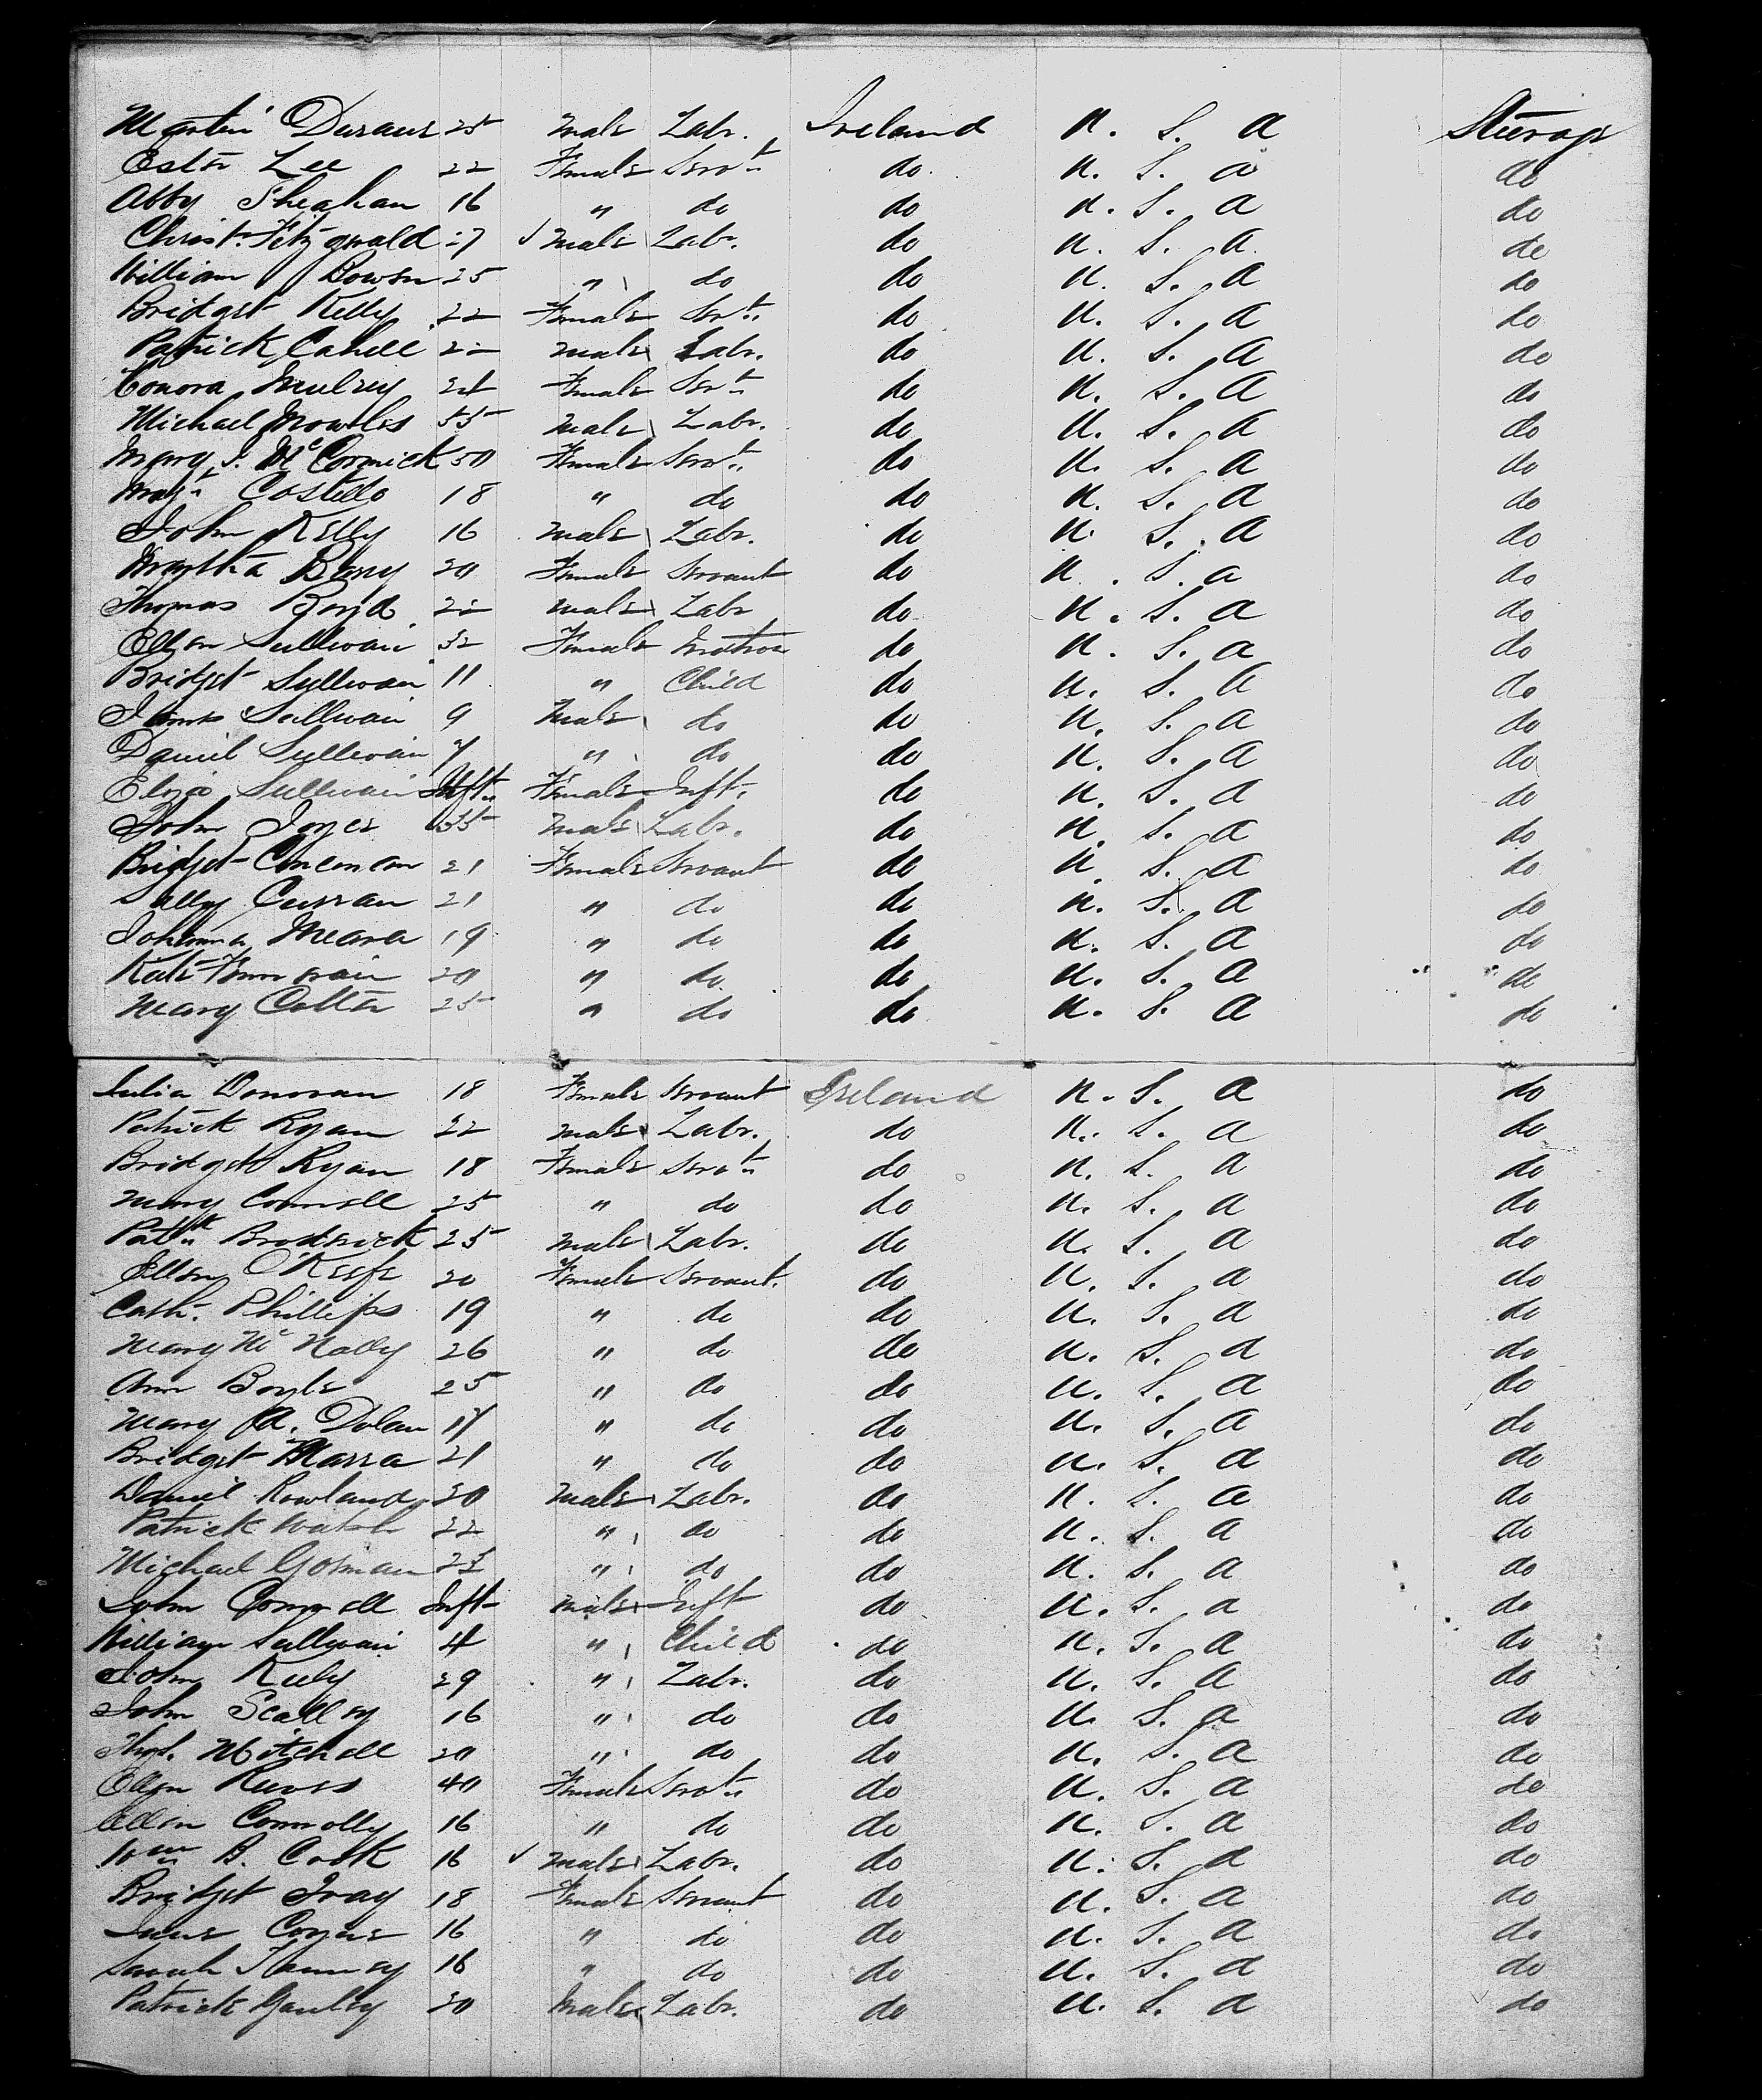 Martin 25 male Labr. Ireland U. S. A Steerage
Lee 22 Female Servt. do. U. S. A do
Abby Sheahan 16 " do do U. S. A do
Christr. Fitzgerald 27 male Labr. do U. S. A. de
William Bowen 25 " do do U. S. A do
Bridget Kelly 22 Female Servt. do U. S. A do
Patrick Cahill male Labr. do U. S. A do
Honora Female Servt. do U. S. A do
Michael 55 male Labr. do U. S. A do
Mary J. McCormick 50 Female Servt. do U. S. A do
Margt. Costello 18 " do do U. S. A do
John Kelly 16 male Labr. do U. S. A do
Martha 20 Female Servant do U. S. A do
Thomas Boyd male Labr do U. S. A do
Ellen Sullivan 32 Female Matron do U. S. A do
Bridget Sullivan 11 " Child do U. S. A do
James Sullivan 9 Male do do U. S. A do
Daniel Sullivan 7 " do do U. S. A do
Eliza Sullivan Inft. Female Inft. do U. S. A do
John Joyce 35 Male Labr. do U. S. A do
Bridget 21 Female Servant do U. S. A do
Sally Curran 21 " do do U. S. A do
Johanna Meara 19 " do do U. S. A do
Kate 20 " do do U. S. A do
Mary 25 " do do U. S. A do
Julia Donovan 18 Female Servant Ireland U. S. A do
Patrick Ryan 22 male Labr. do U. S. A do
Bridget Ryan 18 Female Servt. do U. S. A do
Mary Connell 25 " do do U. S. A do
Patk. Broderick 25 male Labr. do U. S. A do
Ellen O'Keefe 20 Female Servant. do U. S. A do
Cath. Phillips 19 " do do U. S. A do
Mary McNally 26 " do do U. S. A do
Ann Boyle 25 " do do U. S. A do
Mary A. Dolan 17 " do do U. S. A do
Bridget 21 " do do U. S. A do
Daniel Rowland male Labr. do U. S. A do
Patrick Walsh 22 " do do U. S. A do
Michael Gorman 23 " do do U. S. A do
John Connell Inft male Inft do U. S. A do
William Sullivan 4 " Child do U. S. A do
John " Labr. do U. S. A do
John Scally 16 " do do U. S. A do
Thos. Mitchell 20 " do do U. S. A do
Ellen 40 Female Servt. do U. S. A do
Ellen Connolly 16 " do do U. S. A do
Wm. B. Cook 16 male Labr. do U. S. A do
Bridget 18 Female Servant do U. S. A do
Coyne 16 " do do U. S. A do
Sarah " do do U. S. A do
Patrick Male Labr. do U. S. A do